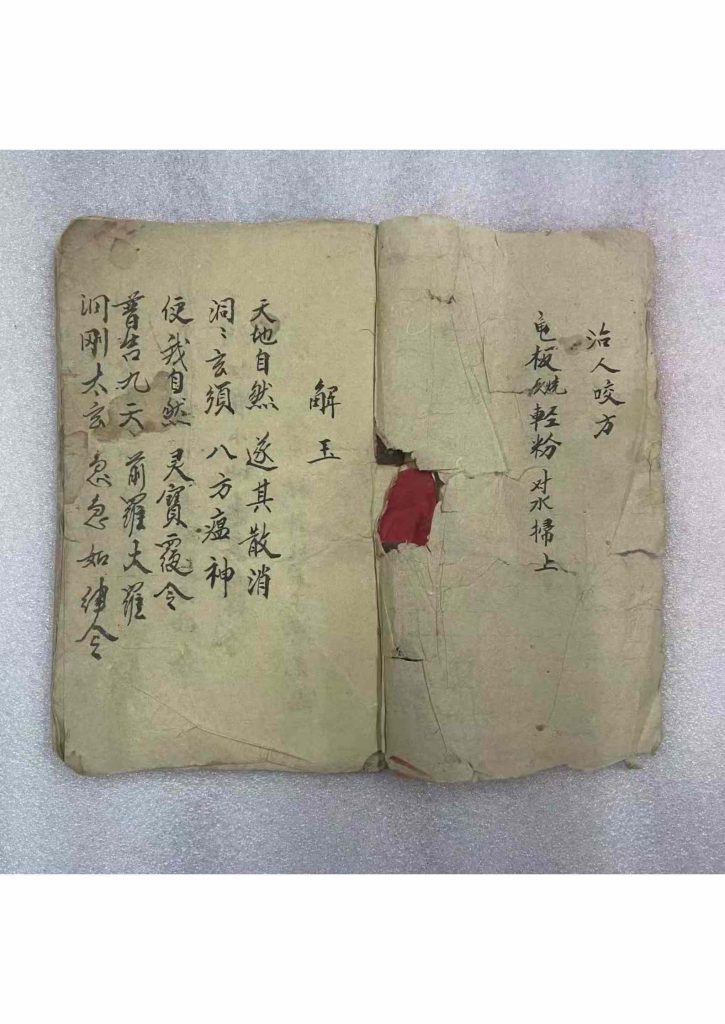 治人咬方
龟板火燒輕粉对水掃上
解玉
天地自然 遂其散消
洞〻玄須 八方瘟神
使我自然 灵寶覆令
普告九天 前羅大羅
洞刚太玄 急急如律令